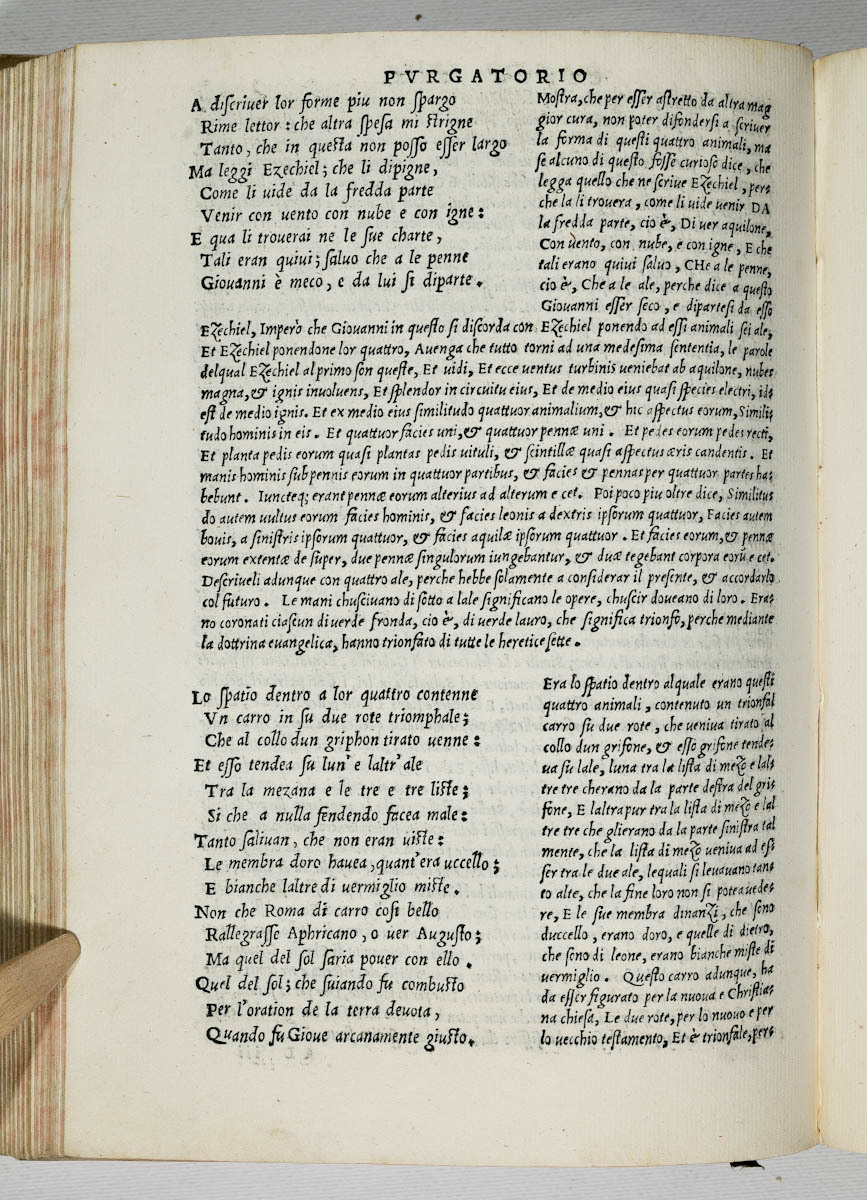 PVRGATORIO
A discriuer lor forme piu non spargo
Rime lettor : che altra spesa mi strigne
Tanto, che in questa non posso esser largo
Ma leggi Ezechiel; che li dipigne,
Come li uide da la fredda parte
Venir con uento con nube e con igne:
E qua li trouerai ne le sue charte,
Tali eran quiui; saluo che a le penne
Giouanni è meco, e da lui si diparte.
Mostra, che per esser astretto da altra mag
gior cura, non poter difondersi a scriuer
la forma di questi quattro animali, ma
se alcuno di questo fosse curioso dice, che
legga quello che ne scriue Ezechiel, per-
che la li trouera, come li uide uenir DA
la fredda parte, cio è, Di uer aquilone,
Con uento, con nube, e con igne, E che
tali erano quiui saluo, CHe a le penne,
cio è, Che a le ale, perche dice a questo
Giouanni esser seco, e dipartesi da esso
Ezechiel, Imperò che Giouanni in questo si discorda con Ezechiel ponendo ad essi animali sei ale,
Et Ezechiel ponendone lor quattro, Auenga che tutto torni ad una medesima sententia, le parole
delqual Ezechiel al primo son queste, Et uidi, Et ecce uentus turbinis ueniebat ab aquilone, nubes
magna, & ignis inuoluens, Et splendor in circuitu eius, Et de medio eius quasi species electri, id-
est de medio ignis. Et ex medio eius similitudo quattuor animalium, & hic aspectus eorum, Simili-
tudo hominis in eis. Et quattuor facies uni, & quattuor pennæ uni. Et pedes eorum pedes recti,
Et planta pedis eorum quasi plantas pedis uituli, & scintillæ quasi aspectus æris candentis. Et
manis hominis sub pennis eorum in quattuor partibus, & facies & pennas per quattuor partes ha-
bebunt. Iuncteq; erant pennæ eorum alterius ad alterum e cet. Poi poco piu oltre dice, Similitu-
do autem uultus eorum facies hominis, & facies leonis a dextris ipsorum quattuor, Facies autem
bouis, a sinistris ipsorum quattuor, & facies aquilæ ipsorum quattuor. Et facies eorum, & pennæ
eorum extentæ de super, due pennæ singulorum iungebantur, & duæ tegebant corpora eorū e cet.
Descriueli adunque con quattro ale, perche hebbe solamente a considerar il presente, & accordarlo
col futuro. Le mani chusciuano di sotto a lale significano le opere, chuscir doueano di loro. Era-
no coronati ciascun di uerde fronda, cio è, di uerde lauro, che significa trionfo, perche mediante
la dottrina euangelica, hanno trionfato di tutte le heretice sette.
Lo spatio dentro a lor quattro contenne
Vn carro in su due rote triomphale;
Che al collo dun griphon tirato uenne:
Et esso tendea su lun' e laltr' ale
Tra la mezana e le tre e tre liste;
Si che a nulla fendendo facea male:
Tanto saliuan, che non eran uiste:
Le membra doro hauea, quant'era uccello;
E bianche laltre di uermiglio miste.
Non che Roma di carro cosi bello
Rallegrasse Aphricano, o uer Augusto;
Ma quel del sol saria pouer con ello.
Quel del sol; che suiando fu combusto
Per l'oration de la terra deuota,
Quando fu Gioue arcanamente giusto.
Era lo spatio dentro alquale erano questi
quattro animali, contenuto un trionfal
carro su due rote, che ueniua tirato al
collo dun grifone, & esso grifone tende-
ua su lale, luna tra la lista di mezo e lal-
tre tre cherano da la parte destra del gri-
fone, E laltra pur tra la lista di mezo e lal
tre tre che glierano da la parte sinistra tal
mente, che la lista di mezo ueniua ad es-
ser tra le due ale, lequali si leuauano tan-
to alte, che la fine loro non si potea uede-
re, E le sue membra dinanzi, che sono
duccello, erano doro, e quelle di dietro,
che sono di leone, erano bianche miste di
uermiglio. Questo carro adunque, ha
da esser figurato per la nuoua e Christia-
na chiesa, Le due rote, per lo nuouo e per
lo uecchio testamento, Et è trionfale, per-